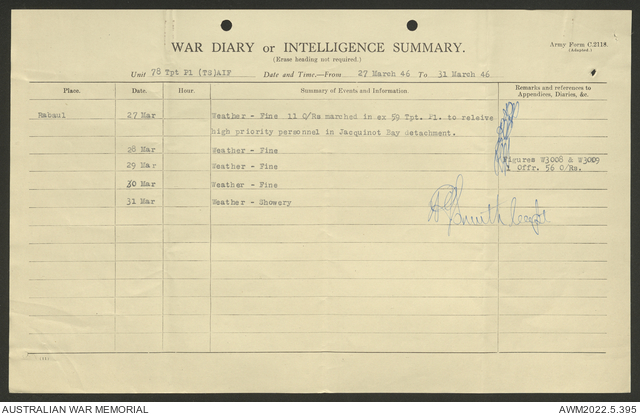 WAR DIARY or INTELLIGENCE SUMMARY.
(Erase heading not required.)
Army Form C.2118.
(Adapted.)
Unit 78 Tpt Pl (TS)AIF Date and Time.—From 27 March 46 To 31 March 46
Place. Date. Hour. Summary of Events and Information Remarks and references to
Appendices, Diaries, &c.
Rabaul 27 Mar Weather - Fine 11 O/Rs marched in ex 59 Tpt. Pl. to releive
high priority personnel in Jacquinot Bay detachment.
28 Mar Weather - Fine
29 Mar Weather - Fine Figures W3008 & W3009
1 Offr. 56 O/Rs.
30 Mar Weather - Fine
31 Mar Weather - Showery
Smith
AUSTRALIAN WAR MEMORIAL AWM2022.5.395